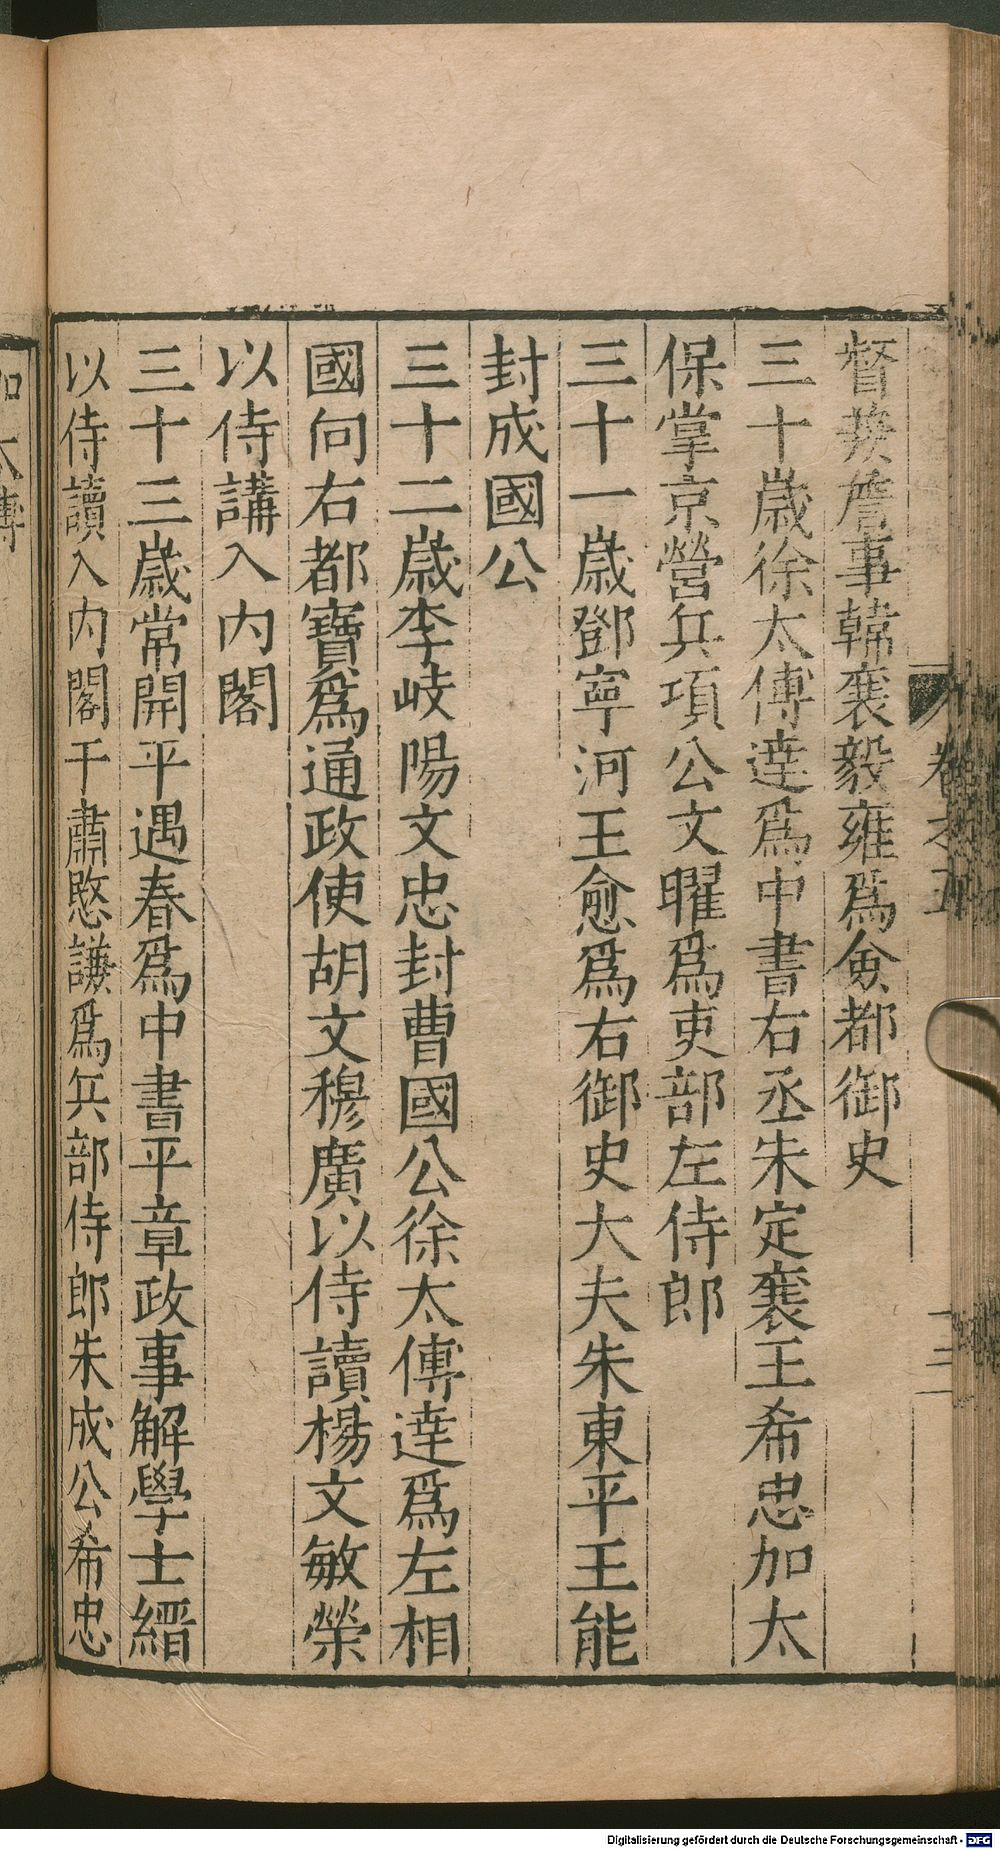 督兼詹事韓襄毅雍爲僉都御史
三十歲徐太傅達爲中書右丞朱定襄王希忠加太
保掌京營兵項公文曜爲吏部左侍郎
三十一歲鄧寧河王愈爲右御史大夫朱東平王能
封成國公
三十二歲李岐陽文忠封曹國公徐太傅達爲左相
國向右都寶爲通政使胡文穆廣以侍讀楊文敏榮
以侍講入內閣
三十三歲常開平遇春爲中書平章政事解學士縉
以侍讀入內閣于肅愍謙爲兵部侍郎朱成公希忠
加太傅
卷之五
十三
Digitalisierung gefördert durch die Deutsche Forschungsgemeinschaft - DFG